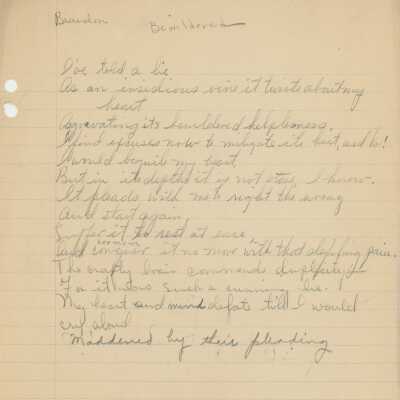 Brandon
Bewildered
I've told a lie
As an insidious vine it twists about my
heart
Agravating its bewildered helplessness.
I find excuses now to mitigate its hurt, and lo!
I would beguile my heart
But in its depths it is not stone, I know.
It pleads with me to right the wrong
And start again,
Suffer it to rest at ease
And conquer it no more with that stupifying price.
The crafty brain commends duplicity
For it knows such a cunning lie.
My heart and mind debate till I would
cry aloud
Maddened by their pleading